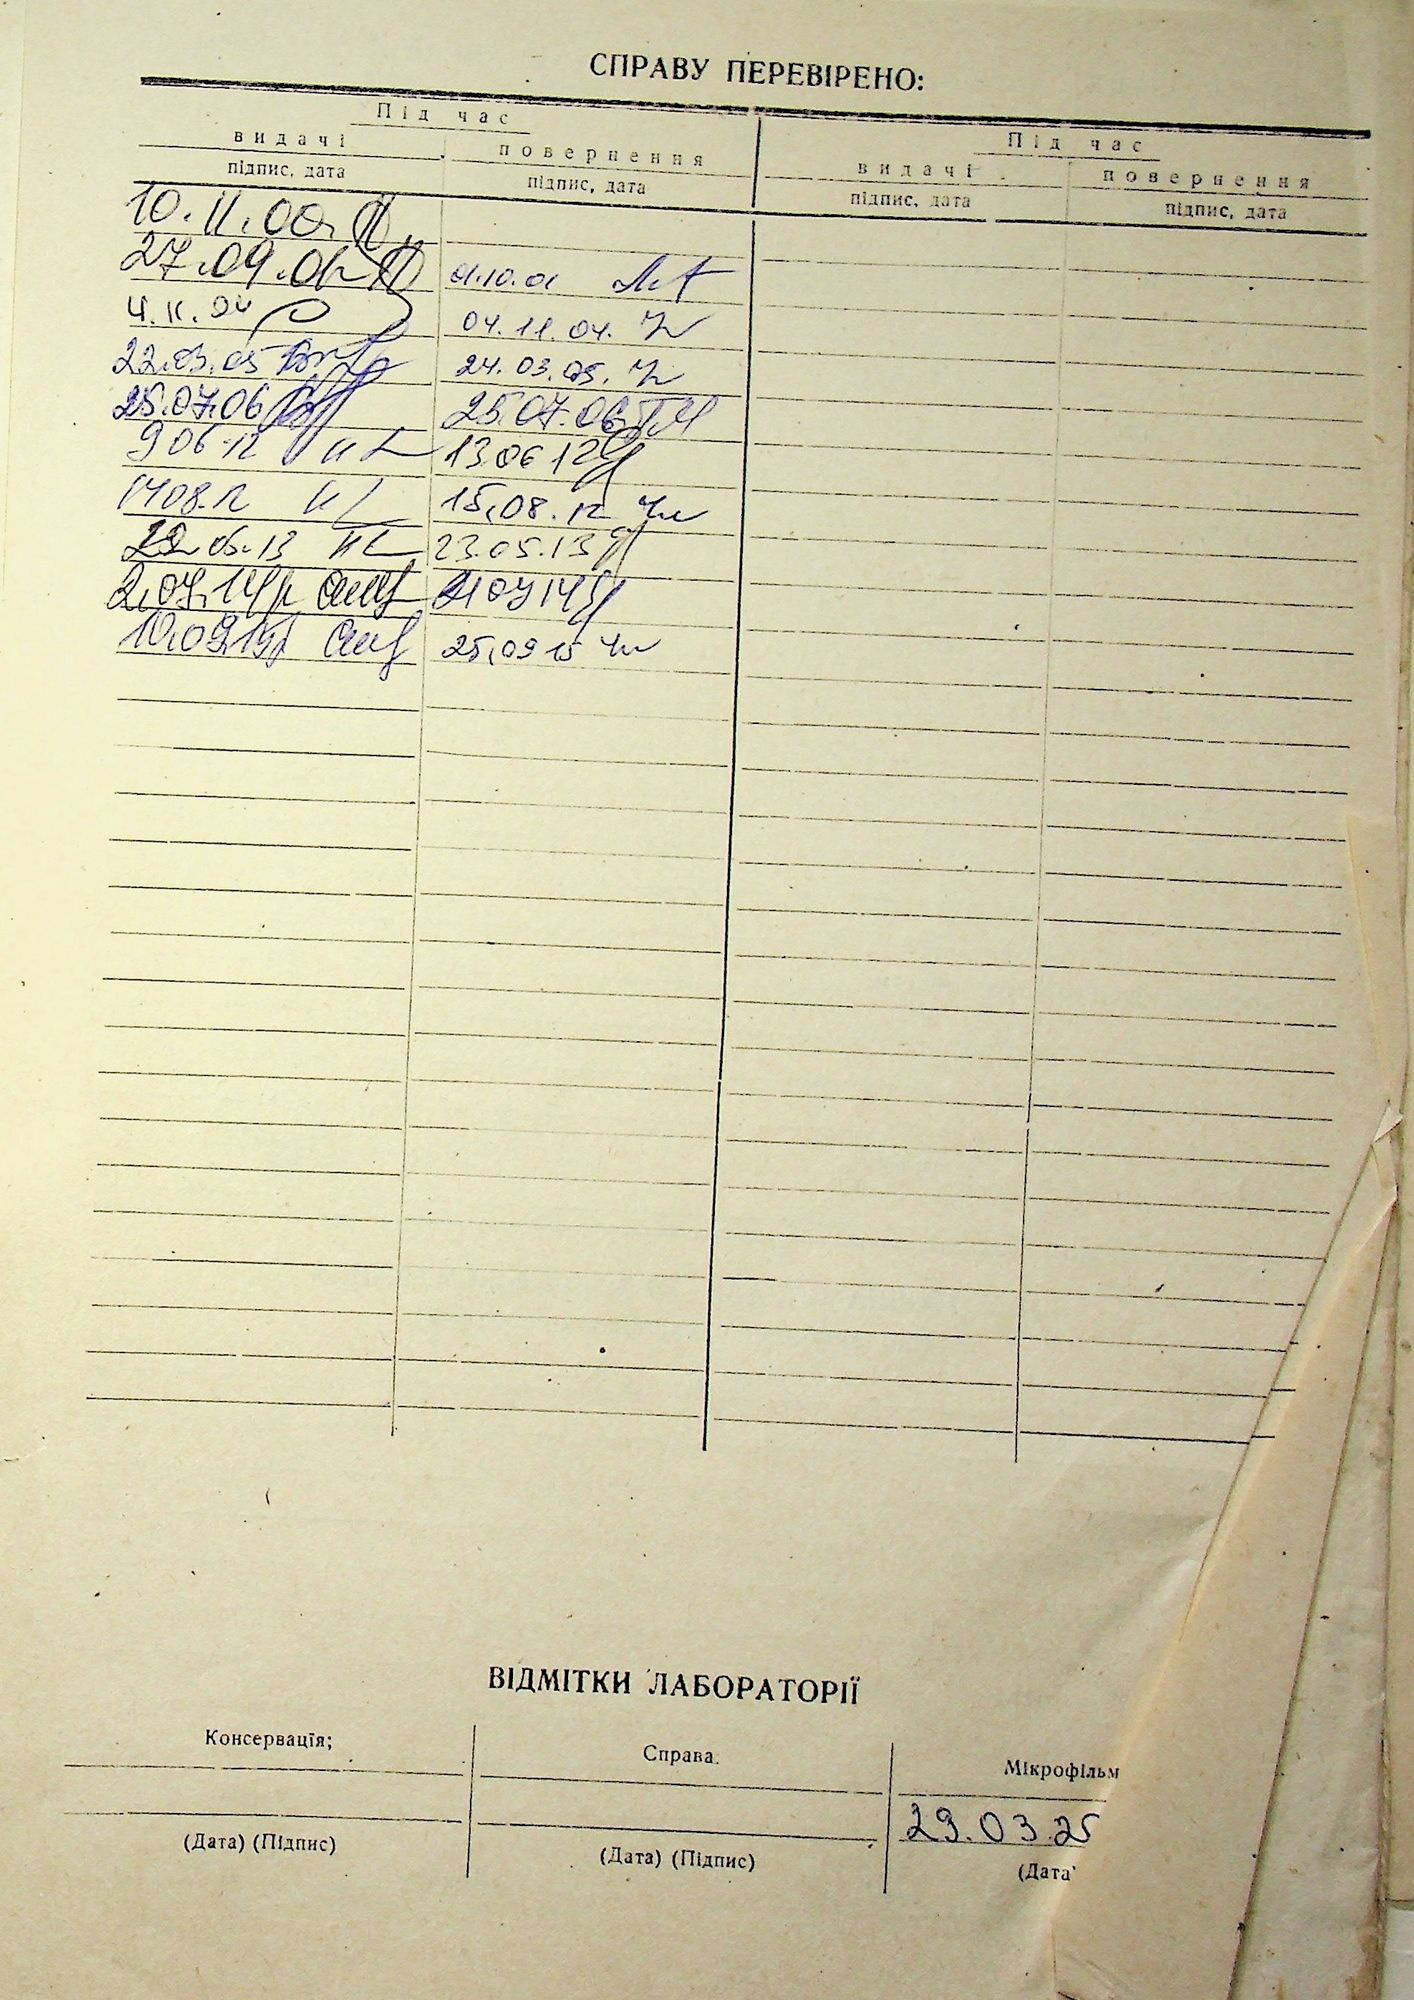 СПРАВУ ПЕРЕВІРЕНО:
Під час Під час
видачі повернення видачі повернення
підпис, дата підпис, дата підпис, дата підпис, дата
10.11.00
27.09.01 01.10.01
4.11.04 04.11.04.
22.03.05 24.03.05.
25.07.06 25.07.06
9 06 12 13.06 12
14 08.12 15.08.12
22.05.13 23.05.13
2.07.14
10.09.15 25.09 15
ВІДМІТКИ ЛАБОРАТОРІЇ
Консервація; Справа. Мікрофільм
29.03.25
(Дата) (Підпис) (Дата) (Підпис) (Дата